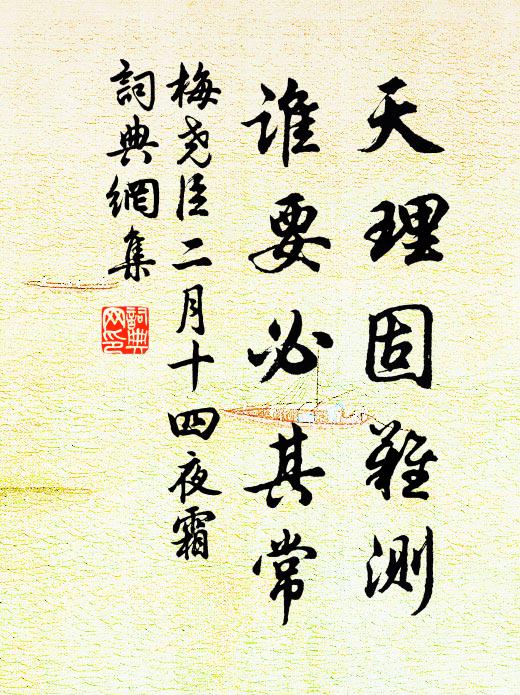 天理固難測
谁要必其常
梅尧臣二月十四夜霜
詞典網集
詞典网印